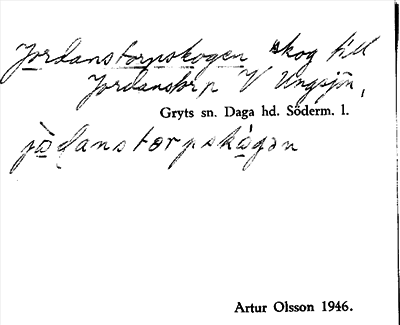 Jordanstorpskogen skog till
Jordanstorp V Ungsjön,
Gryts sn. Daga hd. Söderm. l.
jòɖanstorpskògən
Artur Olsson 1946.